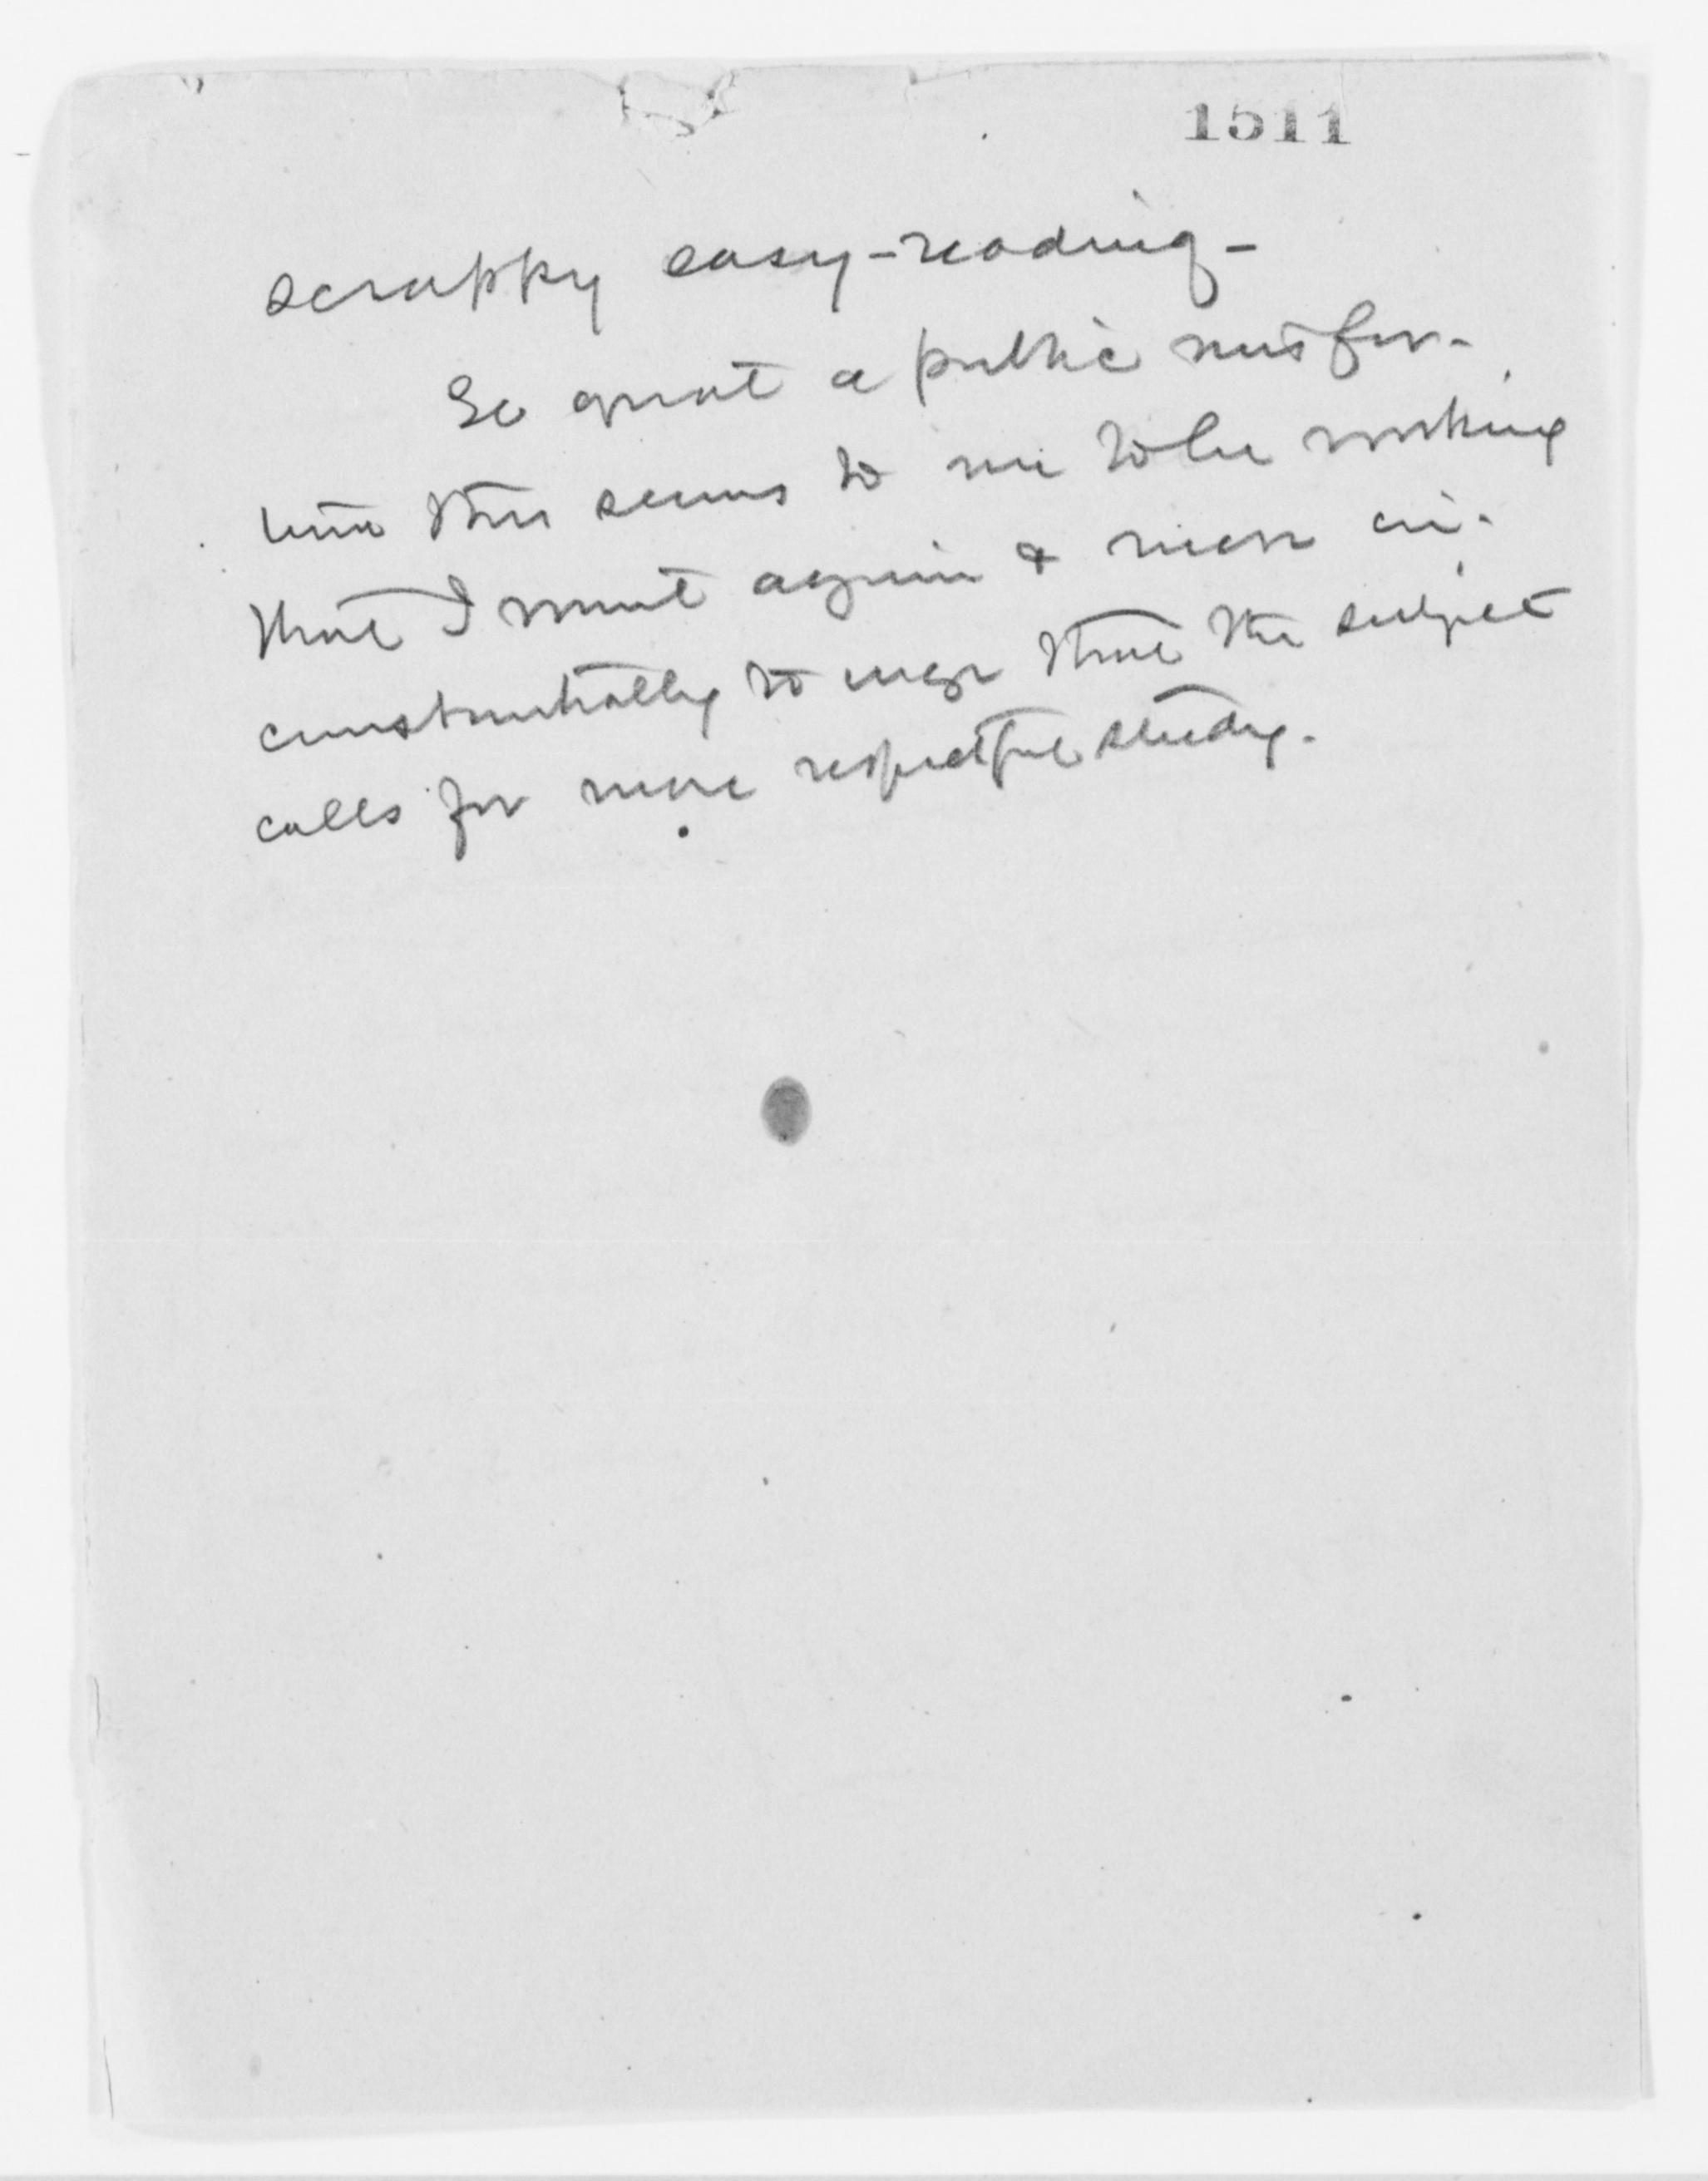 1511
scrappy easy-reading-
So great a public misfor-
tune this seems to me to be working
that I want again & more cir-
cumstantially to urge that the subject
calls for more respectful study.